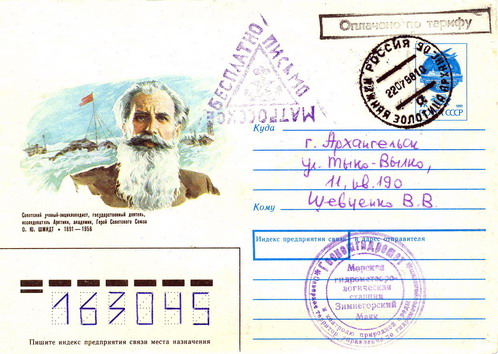 Оплачено по тарифу
БЕСПЛАТНО
ПИСЬМО
МАТРОССКОЕ
РОССИЯ
220798 10
а
СССР
Куда
г. Архангельск
ул. Тыко-Вылко,
11, кв. 190
Кому
Шевченко В.В.
Советский ученый-энциклопедист, государственный деятель,
исследователь Арктики, академик, Герой Советского Союза
О. Ю. ШМИДТ • 1891—1956
Индекс предприятия связи и адрес отправителя
Госкомгидромет
Морская
гидрометеоро-
логическая
станция
Зимнегорский
Маяк
163045
Пишите индекс предприятия связи места назначения